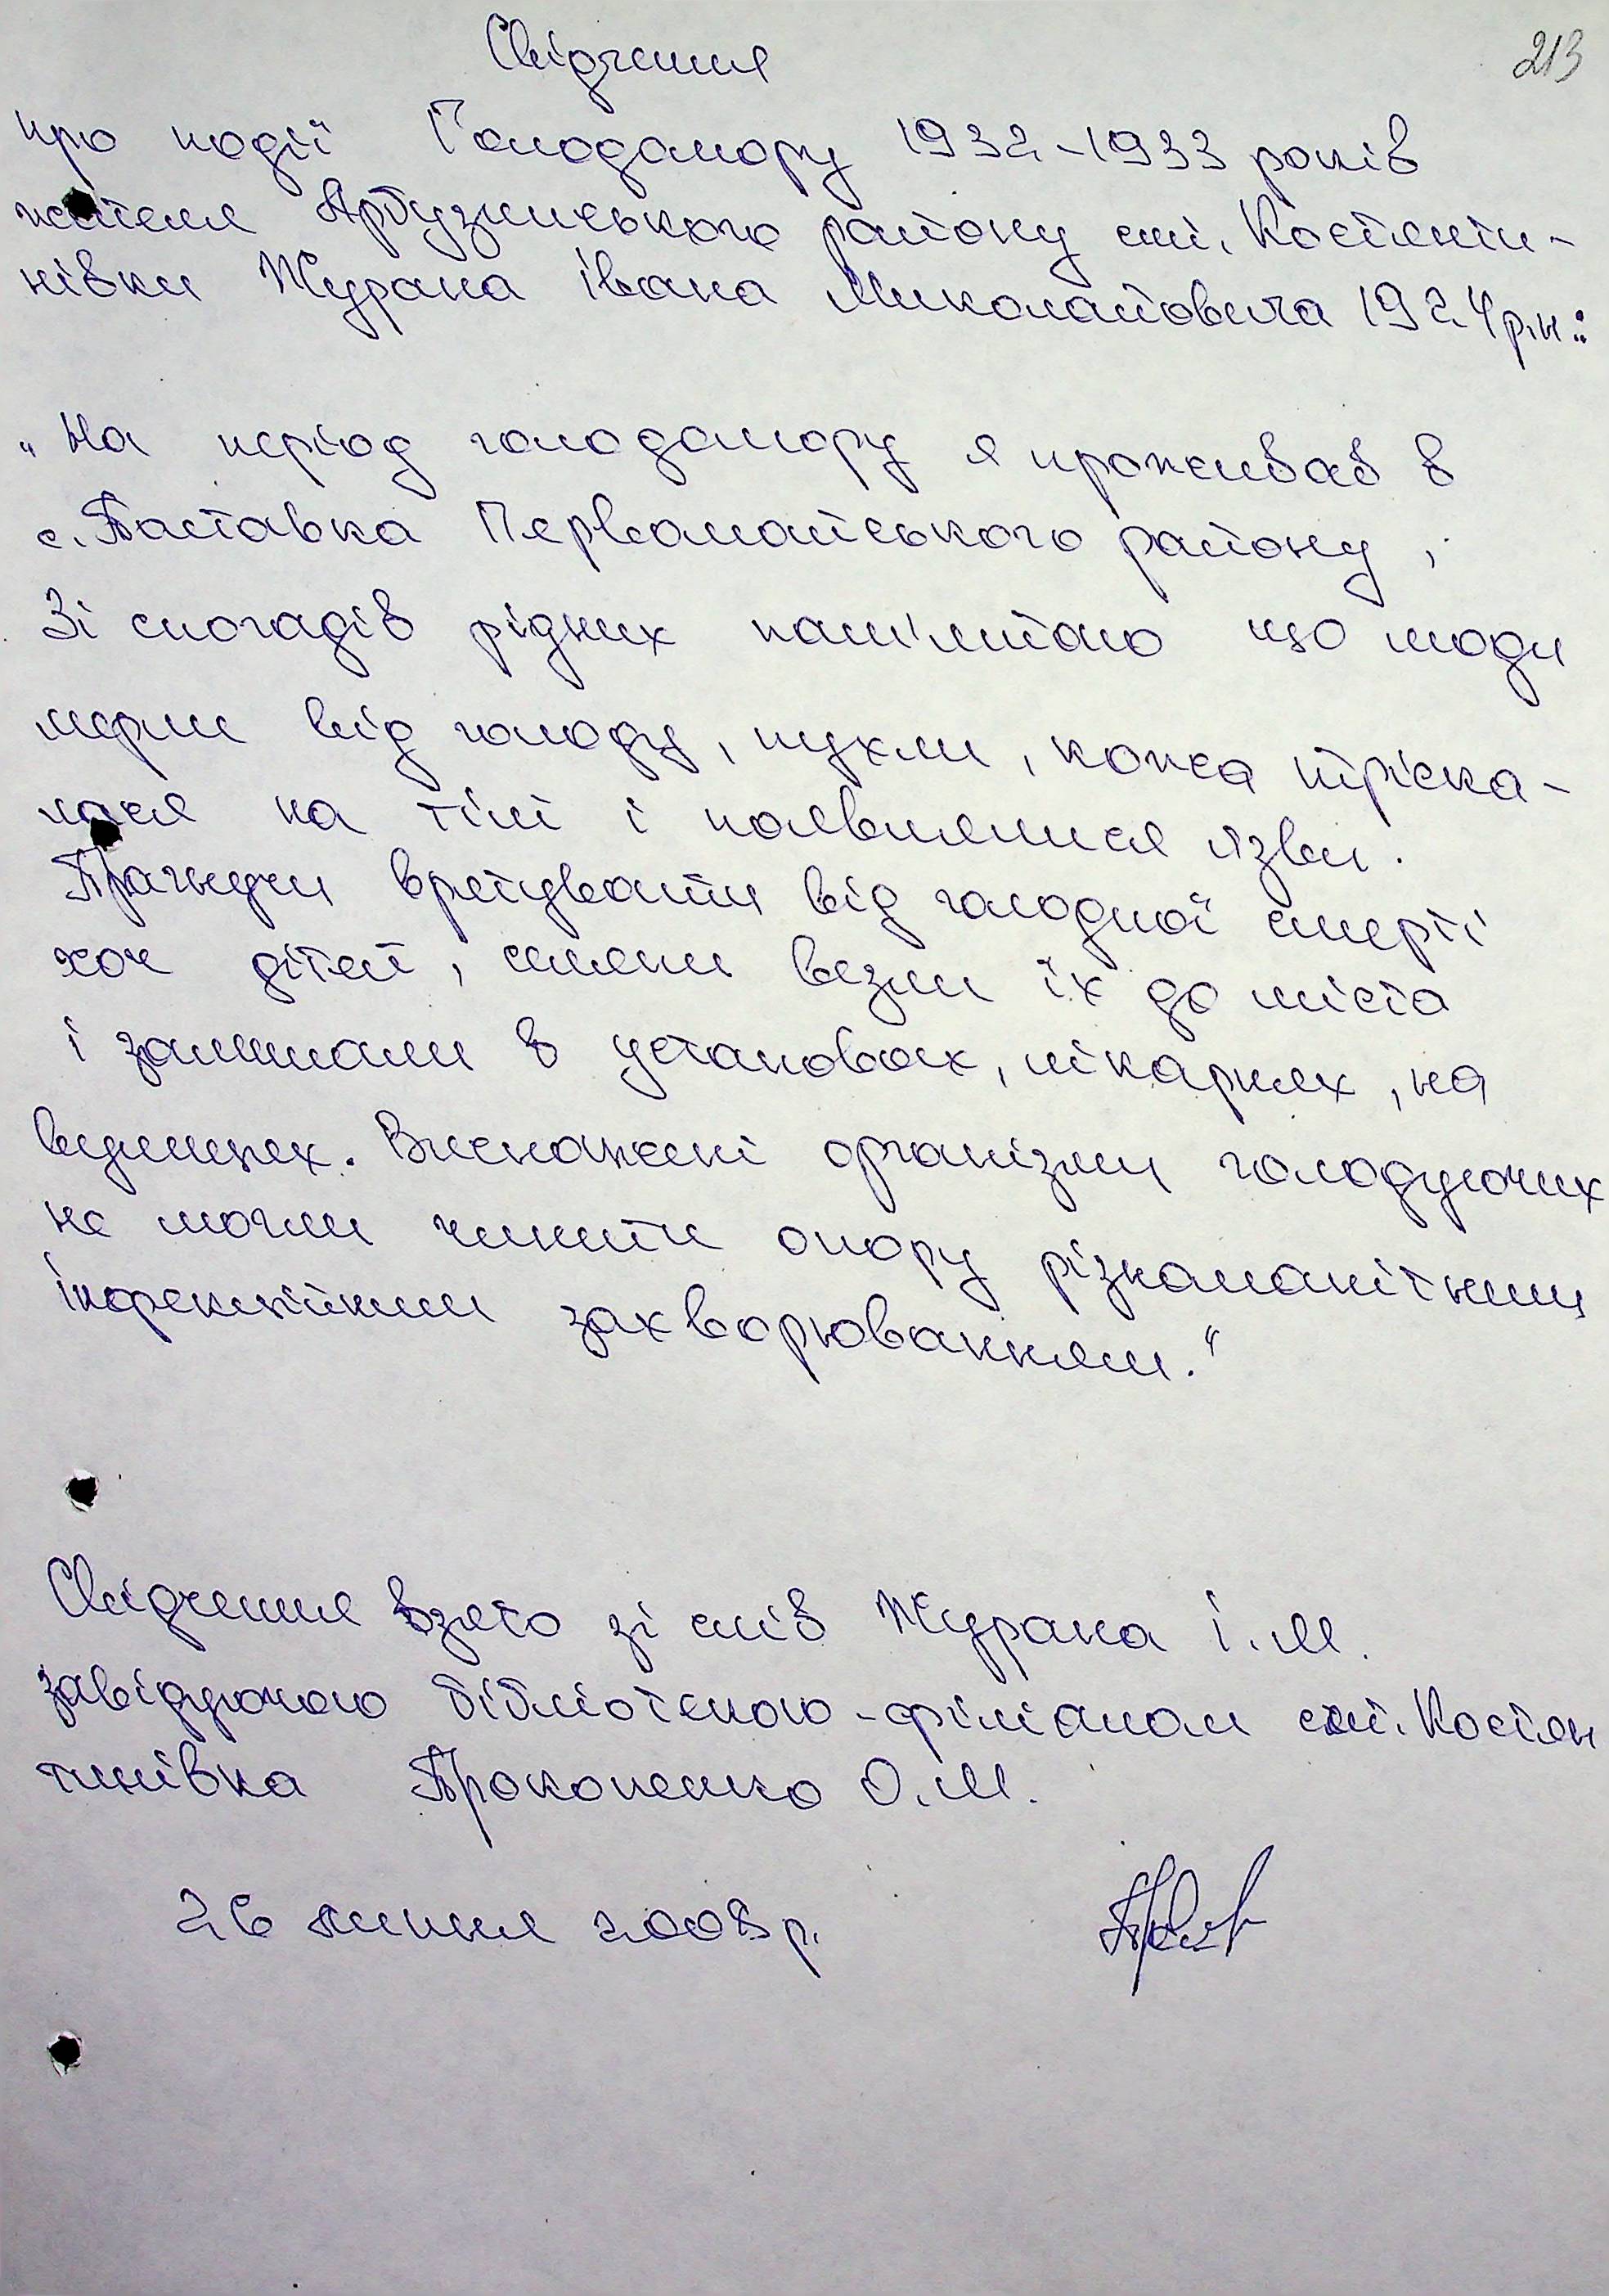 213
Свідчення
про події Голодомору 1932-1933 років
жителя Арбузинського району смт. Костянти-
нівки Журана Івана Миколайовича 1924 р.н.:
„На період голодомору я проживав в
с. Паставка Первомайського району,
Зі спогадів рідних пам'ятаю що люди
мерли від голоду, пухли, кожа тріска-
лася на тілі і появлялися язви.
Прагнучи врятувати від голодної смерті
хоч дітей, селяни везли їх до міста
і залишали в установах, лікарнях, на
вулицях. Виснажені організми голодуючих
не могли чинити опору різноманітним
інфекційним захворюванням."
Свідчення взято зі слів Журана І.М.
завідуючою бібліотекою-філіалом смт. Костян
тинівка Прокопенко О.М.
26 липня 2008 р.